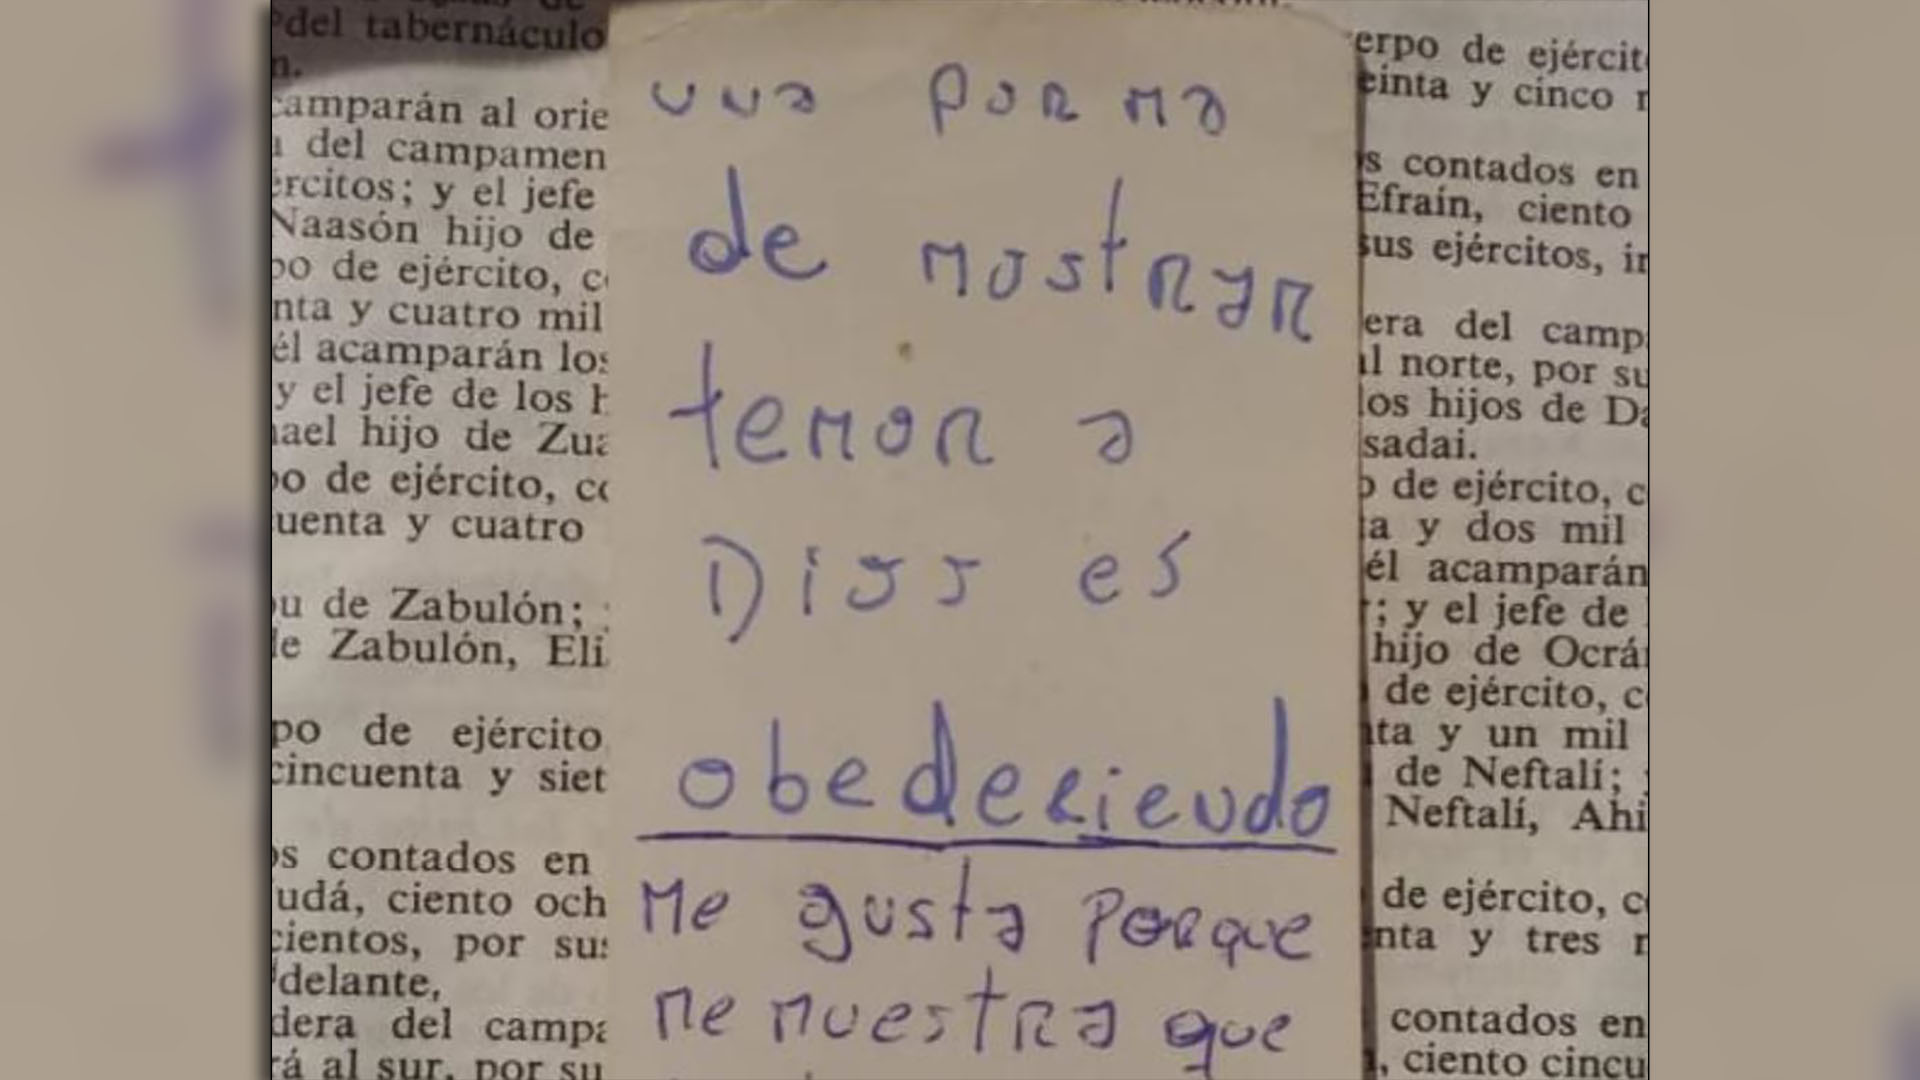 del tabernáculo
n.
camparán al orie
del campamen
ércitos; y el jefe
Naasón hijo de
po de ejército, c
nta y cuatro mil
él acamparán los
y el jefe de los h
ael hijo de Zua
po de ejército, co
uenta y cuatro
u de Zabulón;
le Zabulón, Eli
po de ejército
cincuenta y siet
os contados en
udá, ciento och
cientos, por sus
delante,
dera del campa
rá al sur, por su
una porma
de mostrar
temor a
Dios es
obedeciendo
Me gusta porque
me muestra que
erpo de ejércit
einta y cinco
s contados en
Efraín, ciento
sus ejércitos, ir
era del camp
al norte, por su
los hijos de Da
sadai.
o de ejército, c
ta y dos mil
él acamparán
; y el jefe de
hijo de Ocrá
de ejército, c
ta y un mil
de Neftalí;
Neftalí, Ahi
de ejército, c
nta y tres
contados en
, ciento cincu